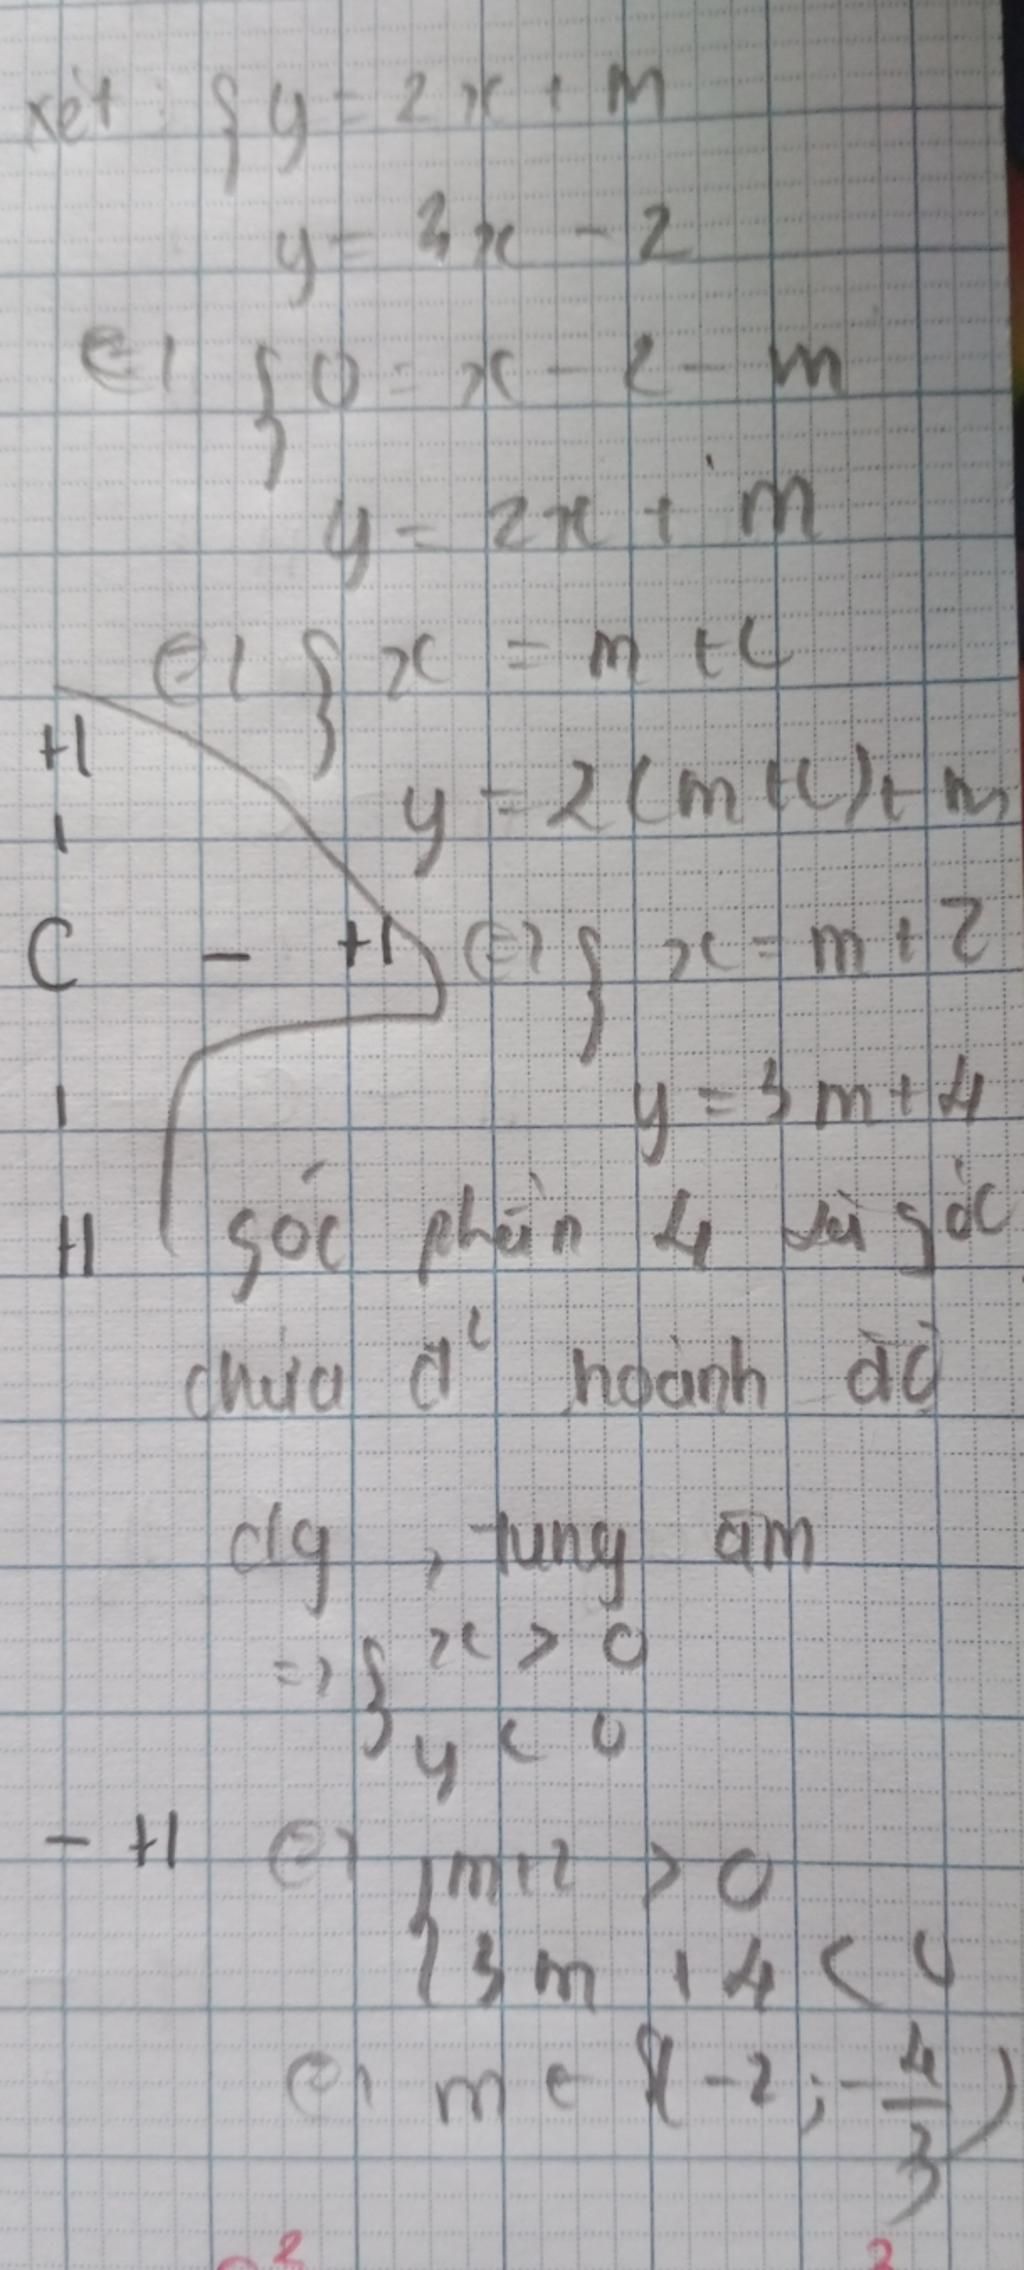 xét : { y = 2x + m
y = 3x - 2
<=> { 0 = x - 2 - m
y = 2x + m
<=> { x = m + 2
y = 2(m+2) + m
<=> { x = m + 2
y = 3m + 4
góc phần 4 là góc
chứa đ² hoành độ
dg , tung âm
=> { x > 0
y < 0
<=> { m+2 > 0
3m + 4 < 0
<=> m ∈ (-2 ; -4/3)
H
|
C - H
|
H
- H